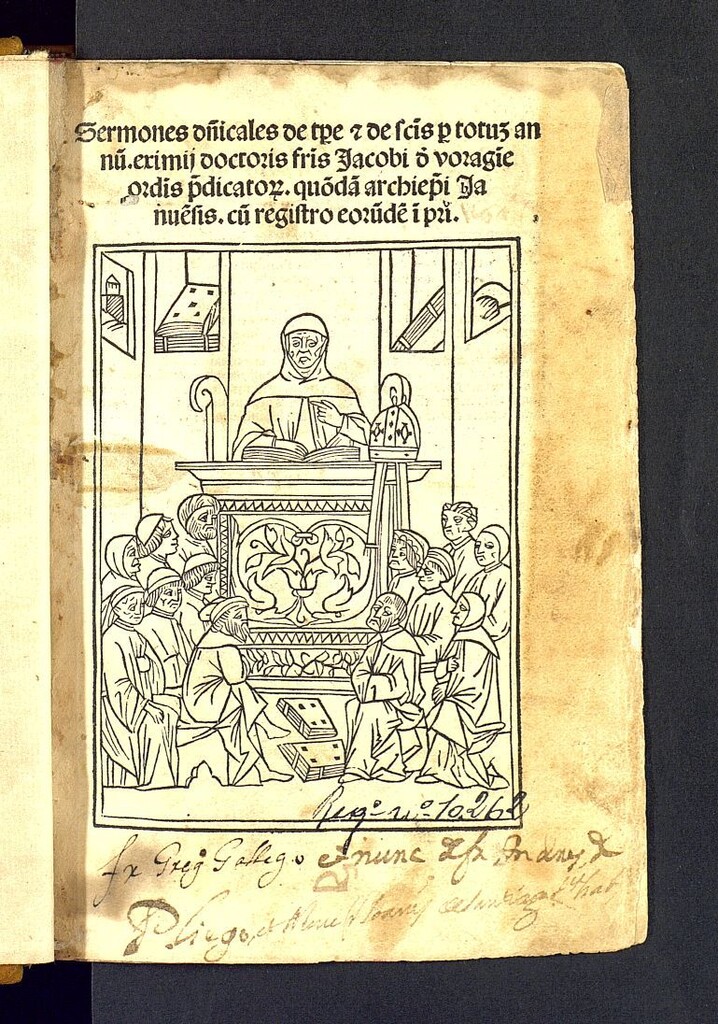 Sermones dñicales de tp̄e ⁊ de sc̄is ꝑ totuꝫ an
nū. eximij doctoris fr̄is Jacobi ď voragīe
ordis p̄dicatoꝝ. quōdā archiep̄i Ja
nuēsis. cū registro eorūdē ī pri.
Regº nº 10.262
fr Greg Gallego et nunc
Pliego